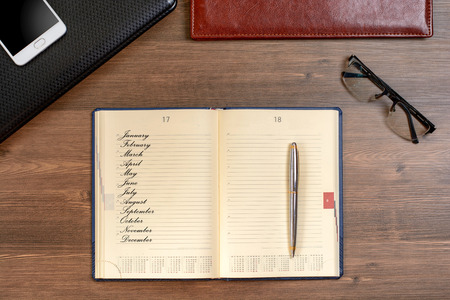 17
18
January
February
March
April
May
June
July
August
September
October
November
December